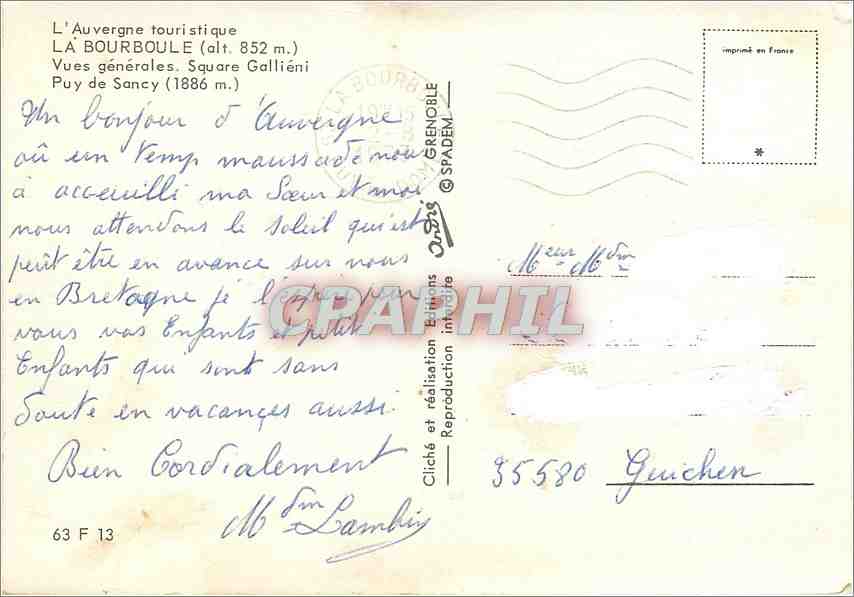 L'Auvergne touristique
LA BOURBOULE (alt. 852 m.)
Vues générales. Square Galliéni
Puy de Sancy (1886 m.)
Un bonjour d'Auvergne
où un temp maussade nous
à accoeuilli ma Soeur et moi
nous attendons le soleil qui est
peût être en avance sur nous
en Bretagne je l'espère pour
vous vos Enfants et petit
Enfants qui sont sans
doute en vacances aussi.
Bien Cordialement
Mdm Lambin
63 F 13
LA BOURB
Cliché et réalisation Editions André GRENOBLE
Reproduction interdite © SPADEM
imprimé en France
*
Mzeur Mdm
35580 Guichen
CPARPHIL